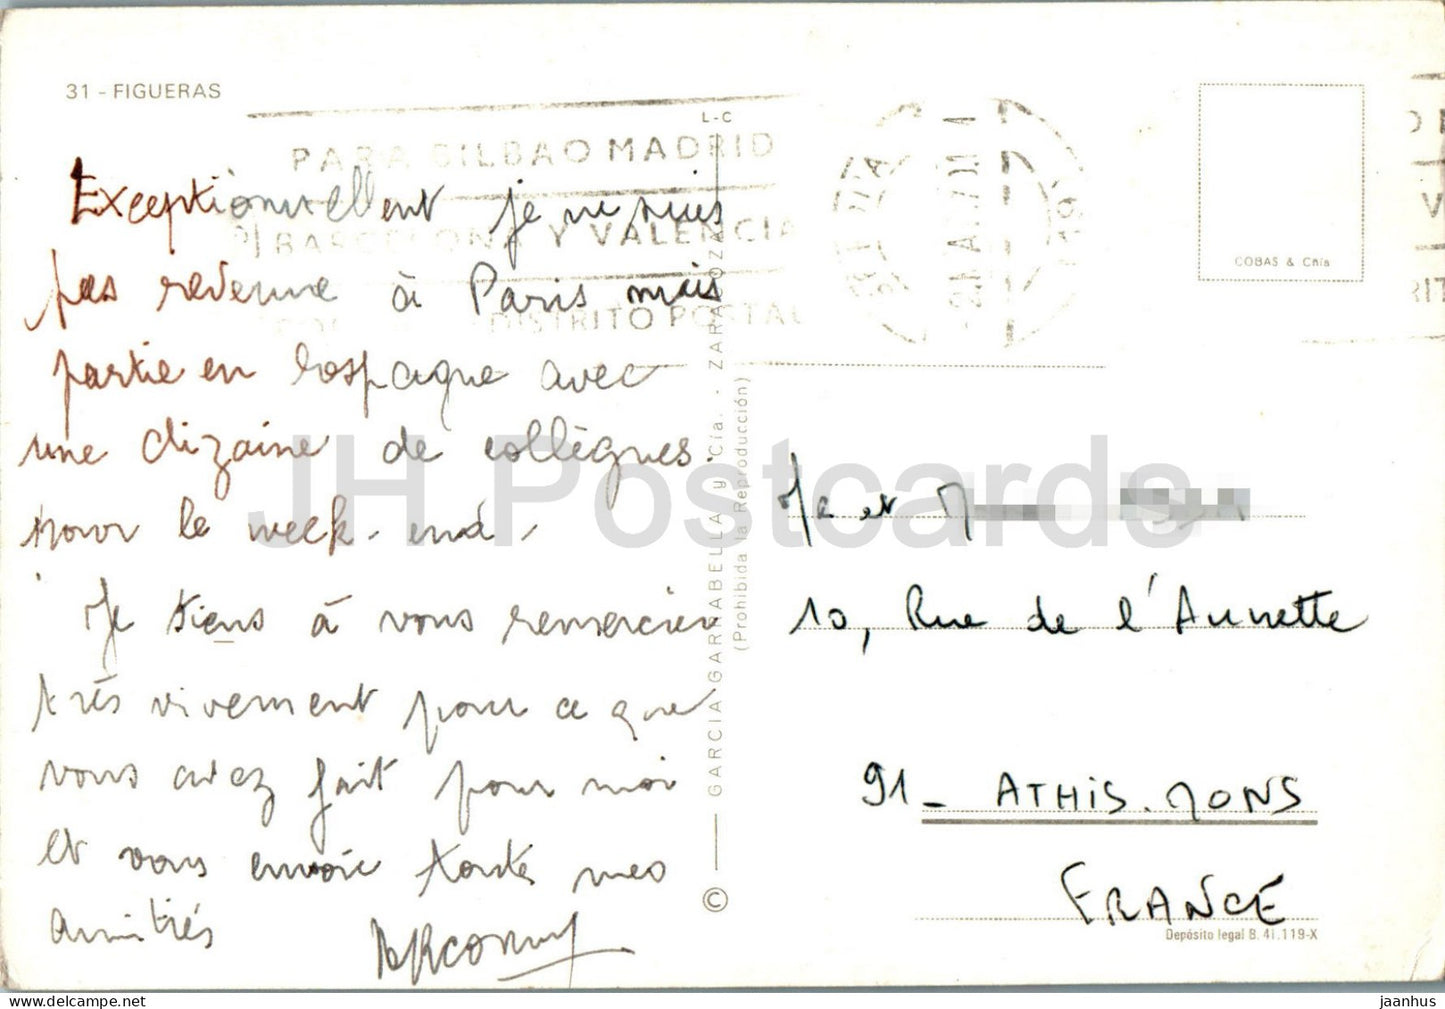 31 - FIGUERAS
L-C
PARA BILBAO MADRID
BARCELONA Y VALENCIA
DISTRITO POSTAL
COBAS & Cñía
Exceptionnellement je ne suis
pas revenue à Paris mais
partie en Espagne avec
une dizaine de collègues.
pour le week-end.
Je tiens à vous remercier
très vivement pour ce que
vous avez fait pour moi
et vous envoie toutes mes
amitiés
© GARCIA GARRABELLA y Cía. - ZARAGOZA
(Prohibida la Reproducción)
et M
10, Rue de l'Aunette
91 - ATHIS-MONS
FRANCE
Depósito legal B. 41.119-X
JH Postcards
jaanhus